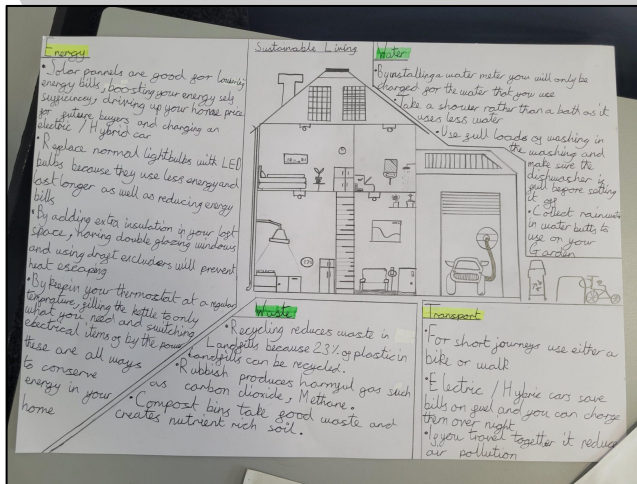 Sustainable Living
Energy
• Solar pannels are good for lowering
energy bills, boosting your energy self
suffciency, driving up your home price
for future buyers and charging an
electric / Hybrid car
• Replace normal lightbulbs with LED
bulbs because they use less energy and
last longer as well as reducing energy
bills
• By adding extra insulation in your loft
space, having double glazing windows
and using draft excluders will prevent
heat escaping
• By keepin your thermostat at a regular
temperature, filling the kettle to only
what you need and switching
electrical items of by the power
these are all ways
to conserve
energy in your
home
Water
• By installing a water meter you will only be
charged for the water that you use
• Take a shower rather than a bath as it
uses less water
• Use full loads of washing in
the washing and
make sure the
dishwasher is
full before setting
it off
• Collect rainwater
in water butts to
use on your
Garden
Waste
• Recycling reduces waste in
Landfills because 23% of plastic in
landfills can be recycled.
• Rubbish produces harmful gas such
as carbon dioxide, Methane.
• Compost bins take good waste and
creates nutrient rich soil.
Transport
• For short journeys use either a
bike or walk
• Electric / Hybric cars save
bills on fuel and you can charge
them over night
• If you travel together it reduce
air pollution